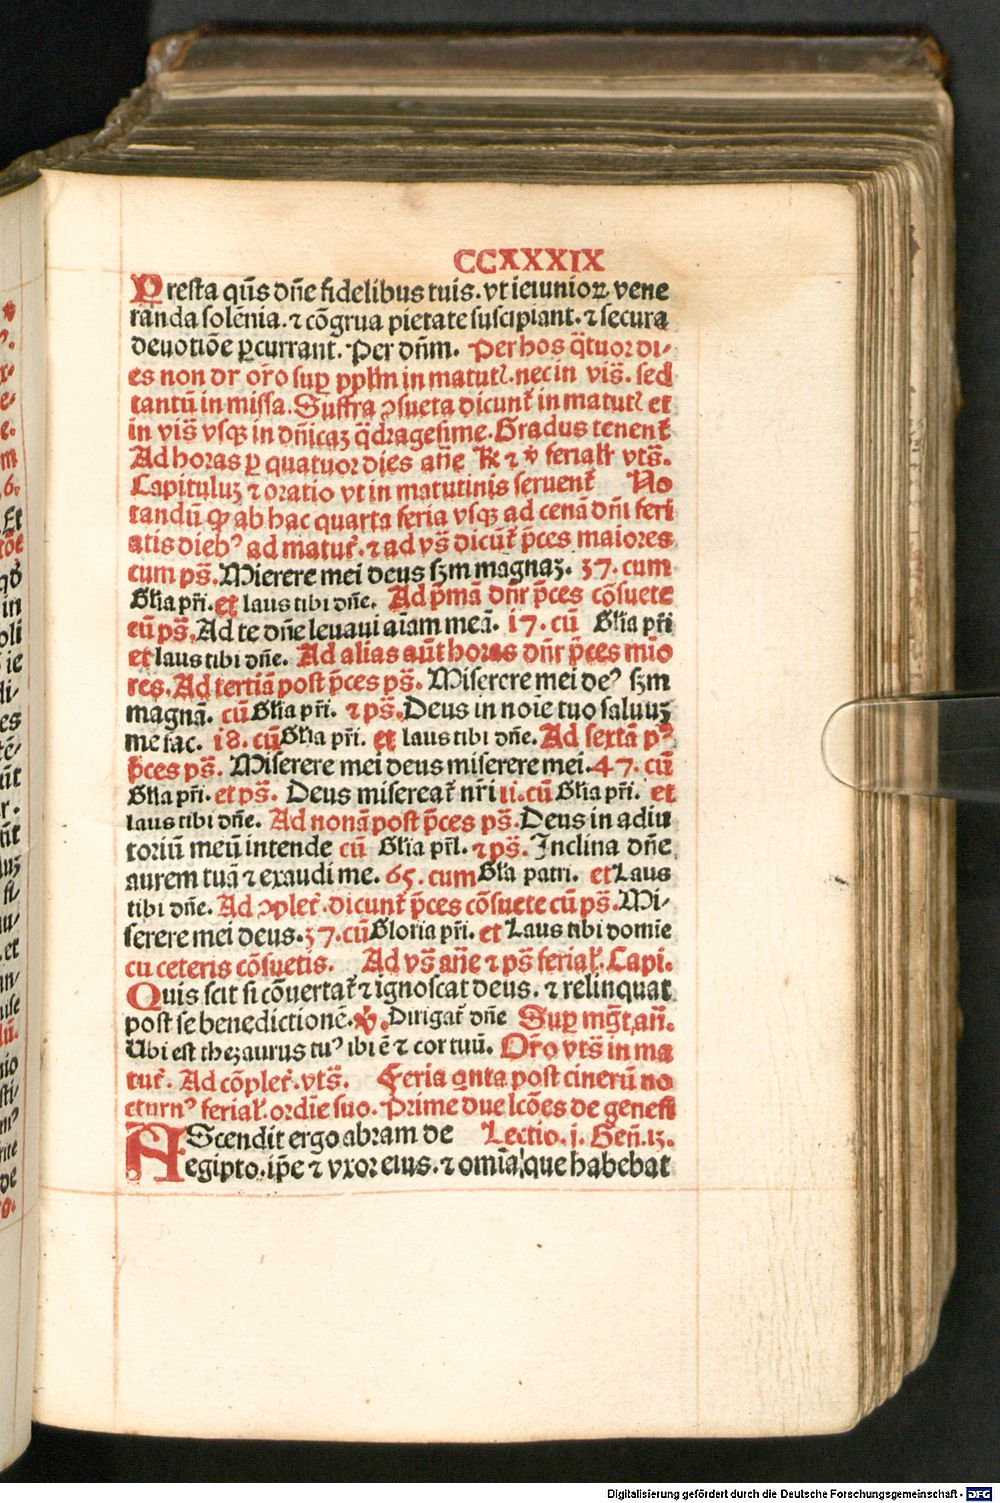 CCXXXIX
Presta qūs dñe fidelibus tuis. vt ieiunioꝝ vene
randa solēnia. ⁊ cōgrua pietate suscipiant. ⁊ secura
deuotiōe ꝑcurrant. Per dñm. Per hos q̄tuor di⸗
es non dr̄ or̄o suꝑ pplm̄ in matut̄. nec in vis̄. sed
tantū in missa. Suffra ↄsueta dicunt̄ in matut̄ et
in vis̄ vsqꝫ in dñicaꝫ q̄dragesime. Gradus tenent̄
Ad horas ꝑ quatuor dies añe ℟ ⁊ ℣ ferial̄ vts̄.
Capituluꝫ ⁊ oratio vt in matutinis seruent̄ No
tandū ꝙ ab hac quarta feria vsqꝫ ad cenā dñi feri
atis diebꝰ ad matut̄. ⁊ ad vs̄ dicūt̄ p̄ces maiores
cum ps̄. Mierere mei deus sm̄ magnaꝫ. 37. cum
Glia pr̄i. et laus tibi dñe. Ad p̄ma dñr p̄ces cōsuete
cū ps̄. Ad te dñe leuaui aīam meā. 17. cū Glia pr̄i
et laus tibi dñe. Ad alias aūt horas dñr p̄ces mīo
res. Ad tertiā post p̄ces ps̄. Miserere mei deꝰ sm̄
magnā. cū Glia pr̄i. ⁊ ps̄. Deus in noīe tuo saluuꝫ
me fac. 18. cū Glia pr̄i. et laus tibi dñe. Ad sextā pꝰ
p̄ces ps̄. Miserere mei deus miserere mei. 47. cū
Glia pr̄i. et ps̄. Deus misereat̄ nr̄i ii. cū Glia pr̄i. et
laus tibi dñe. Ad nonā post p̄ces ps̄. Deus in adiu
toriū meū intende cū Glia pr̄i. ⁊ ps̄. Inclina dñe
aurem tuā ⁊ exaudi me. 65. cum Gl̄a patri. et Laus
tibi dñe. Ad ↄplet̄. dicunt̄ p̄ces cōsuete cū ps̄. Mi⸗
serere mei deus. 37. cū Gloria pr̄i. et Laus tibi domīe
cu ceteris cōsuetis. Ad vs̄ añe ⁊ ps̄ ferial̄. Capi.
Quis scit si cōuertat̄ ⁊ ignoscat deus. ⁊ relinquat
post se benedictionē. ℣. Dirigat̄ dñe Suꝑ mḡt, añ.
Ubi est thezaurus tuꝰ ibi ē ⁊ cor tuū. Or̄o vts̄ in ma
tut̄. Ad cōplet̄. vts̄. Feria qnta post cinerū no
cturnꝰ ferial̄. ordīe suo. Prime due lcōes de genesi
AScendit ergo abram de Lectio. j. Geñ. 13.
egipto. ip̄e ⁊ vxor eius. ⁊ omīa que habebat
Digitalisierung gefördert durch die Deutsche Forschungsgemeinschaft - DFG